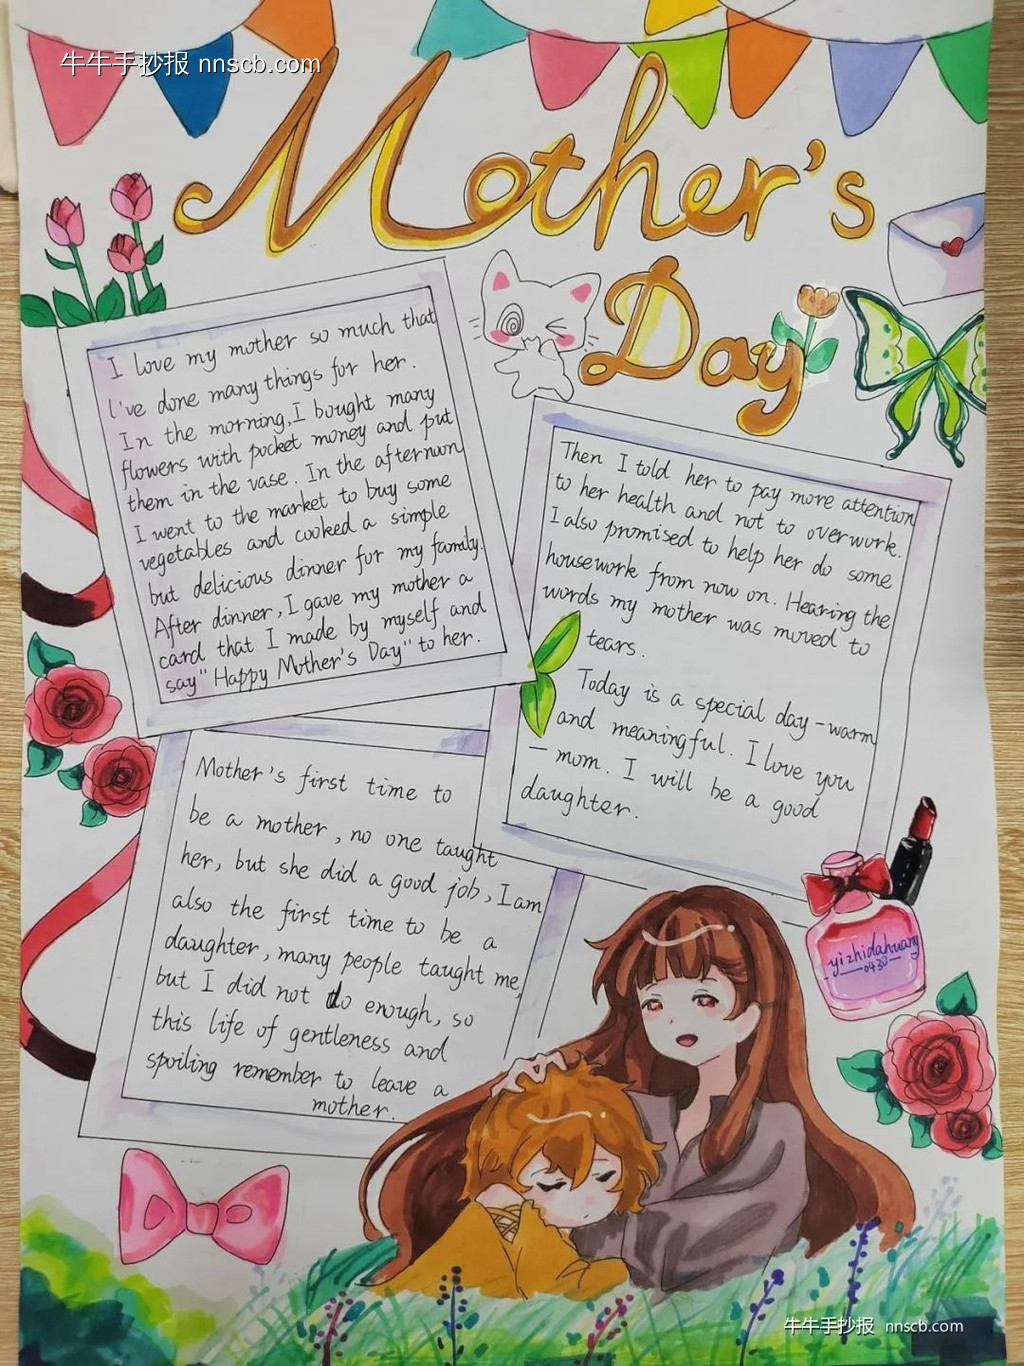 牛牛手抄报 nnscb.com
Mother's
Day
I love my mother so much that
I've done many things for her.
In the morning, I bought many
flowers with pocket money and put
them in the vase. In the afternoon
I went to the market to buy some
vegetables and cooked a simple
but delicious dinner for my family.
After dinner, I gave my mother a
card that I made by myself and
say "Happy Mother's Day" to her.
Then I told her to pay more attention
to her health and not to overwork.
I also promised to help her do some
housework from now on. Hearing the
words my mother was moved to
tears.
Today is a special day - warm
and meaningful. I love you
— mom. I will be a good
daughter.
Mother's first time to
be a mother, no one taught
her, but she did a good job, I am
also the first time to be a
daughter, many people taught me,
but I did not do enough, so
this life of gentleness and
spoiling remember to leave a
mother.
yizhidahuang
0430
牛牛手抄报 nnscb.com